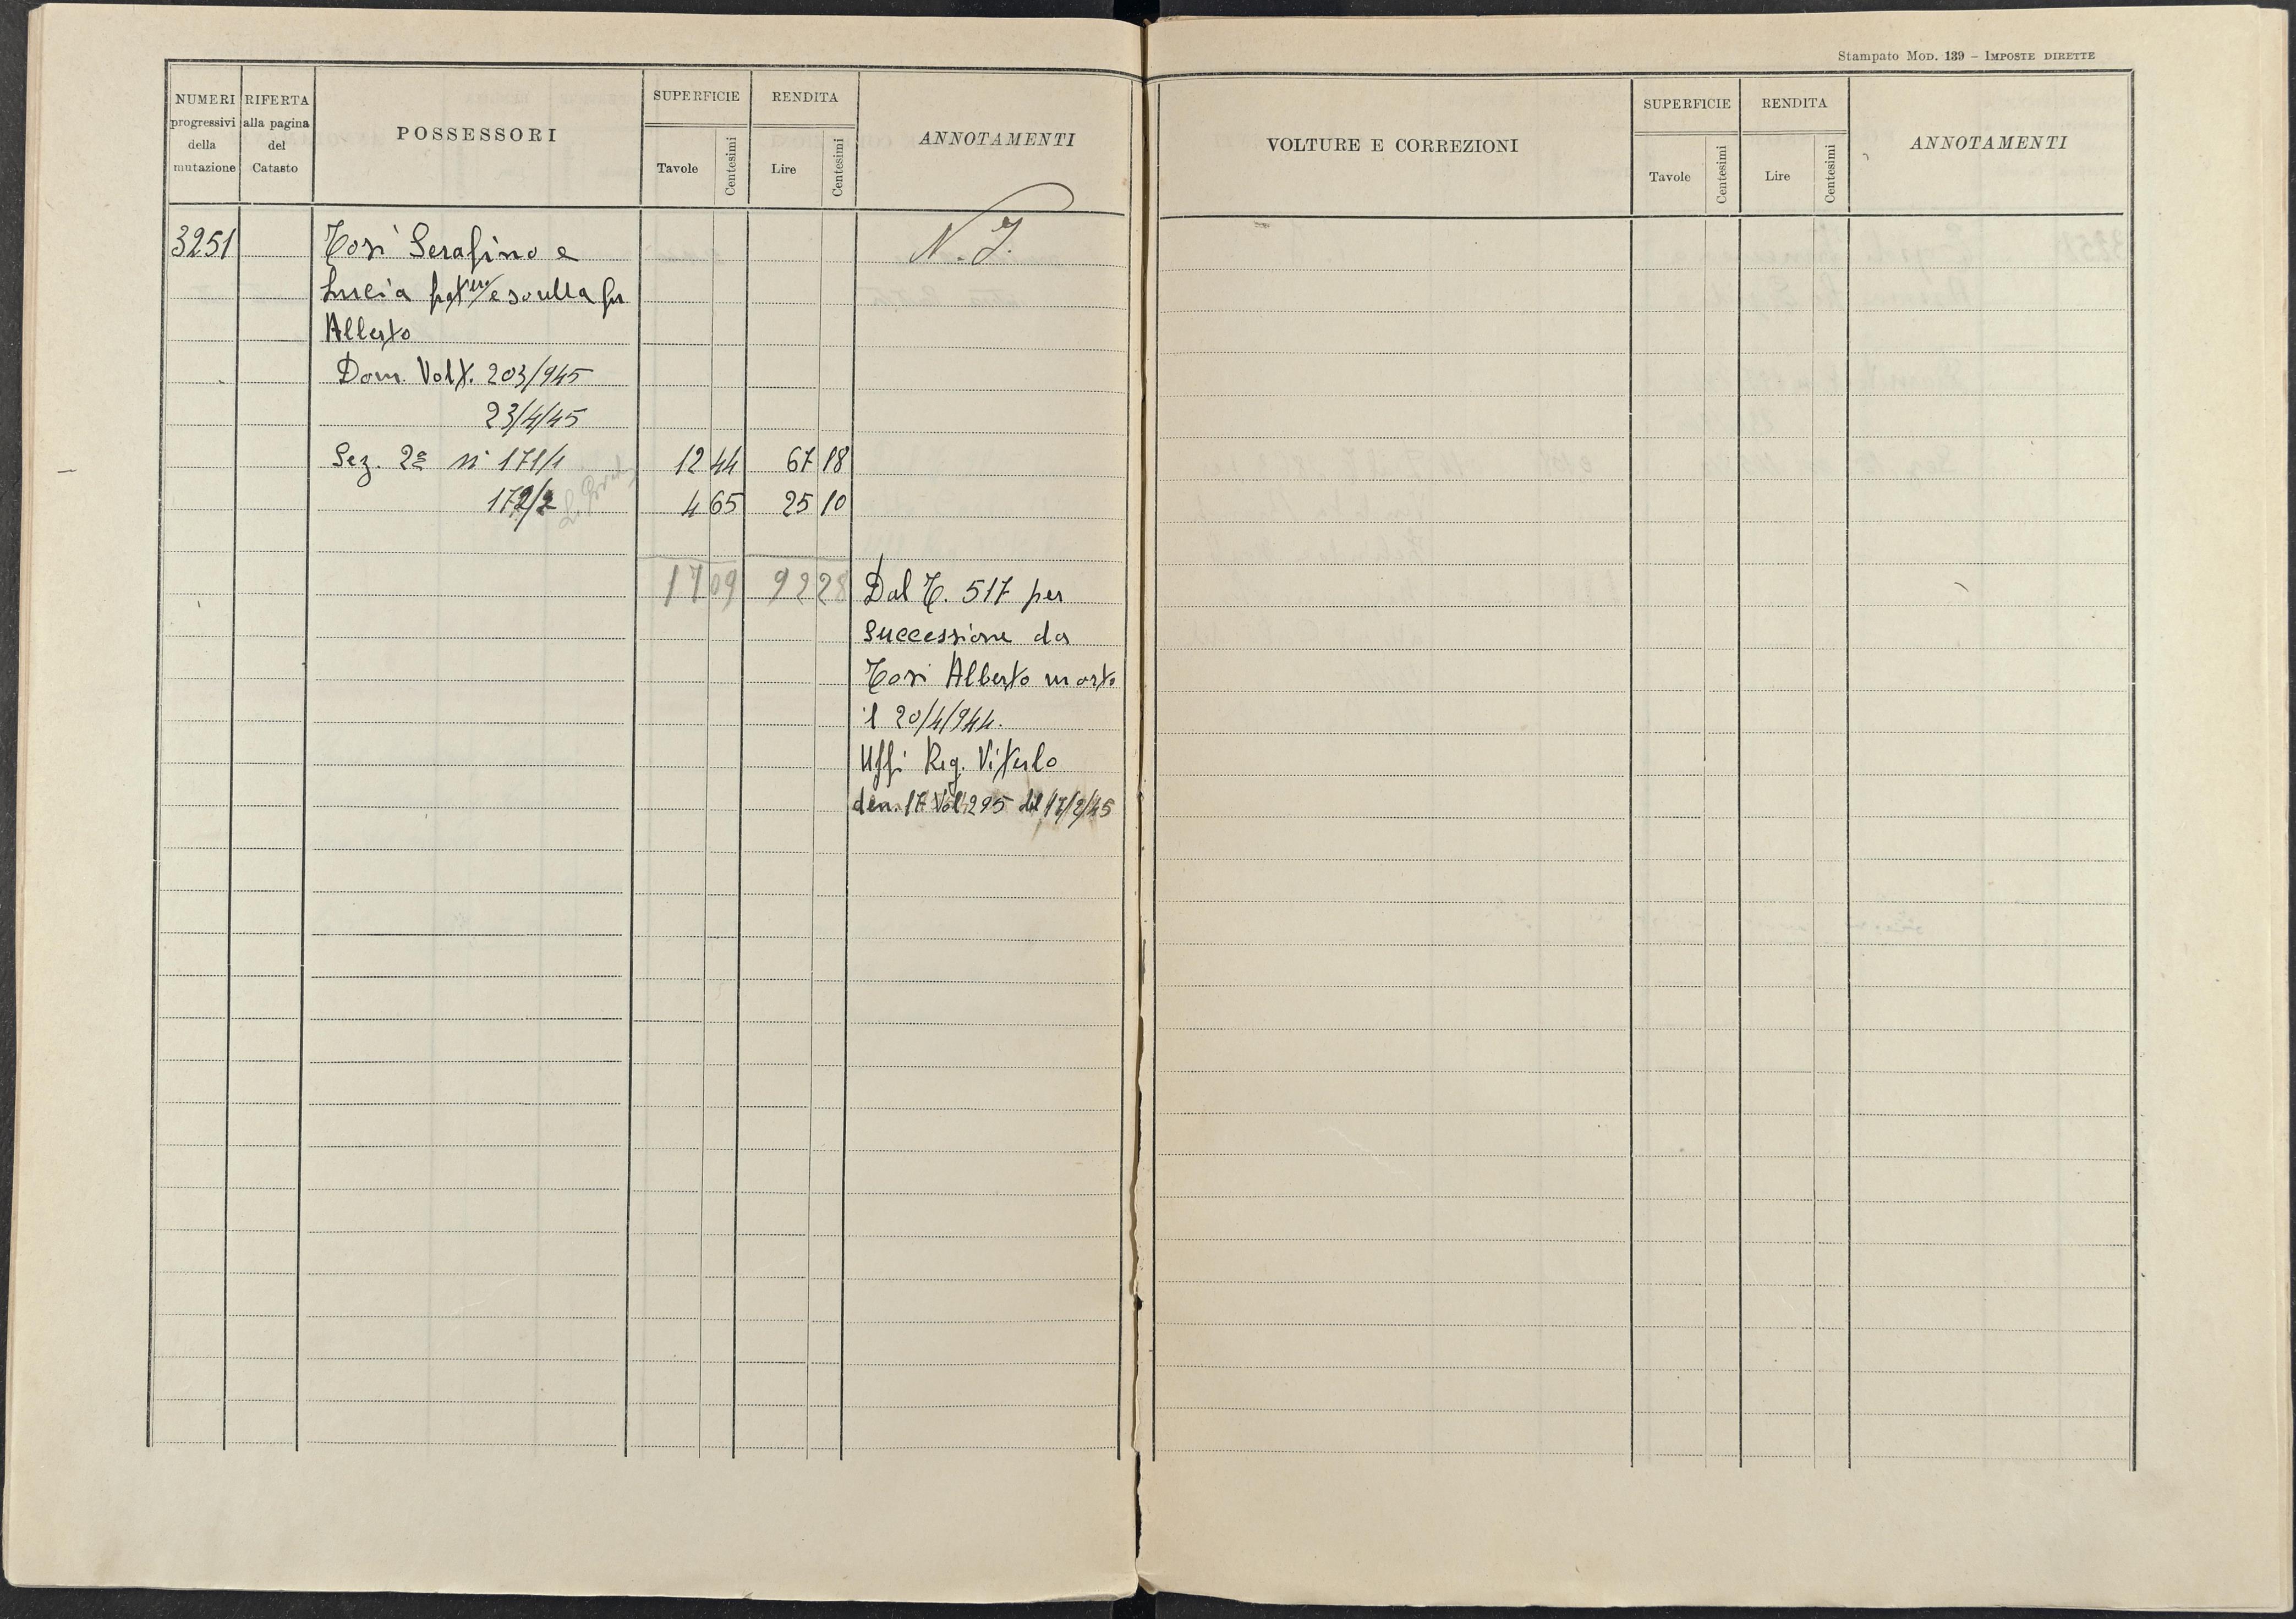 Stampato Mod. 139 – Imposte dirette
NUMERI progressivi della mutazione
RIFERTA alla pagina del Catasto
POSSESSORI
SUPERFICIE
Tavole
Centesimi
RENDITA
Lire
Centesimi
ANNOTAMENTI
VOLTURE E CORREZIONI
SUPERFICIE
Tavole
Centesimi
RENDITA
Lire
Centesimi
ANNOTAMENTI
3251 Tosi Serafino e
Lucia e sorella fu
Alberto
Dom. Volt. 203/945
23/4/45
Sez. 2ª n° 171/1 12 44 67 18
172/2 4 65 25 10
17 09 92 28
N.I.
Dal T. 517 per
Successione da
Tosi Alberto morto
il 20/4/944.
Uffi Reg. Viterbo
den. 17 Vol 295 del 17/2/45